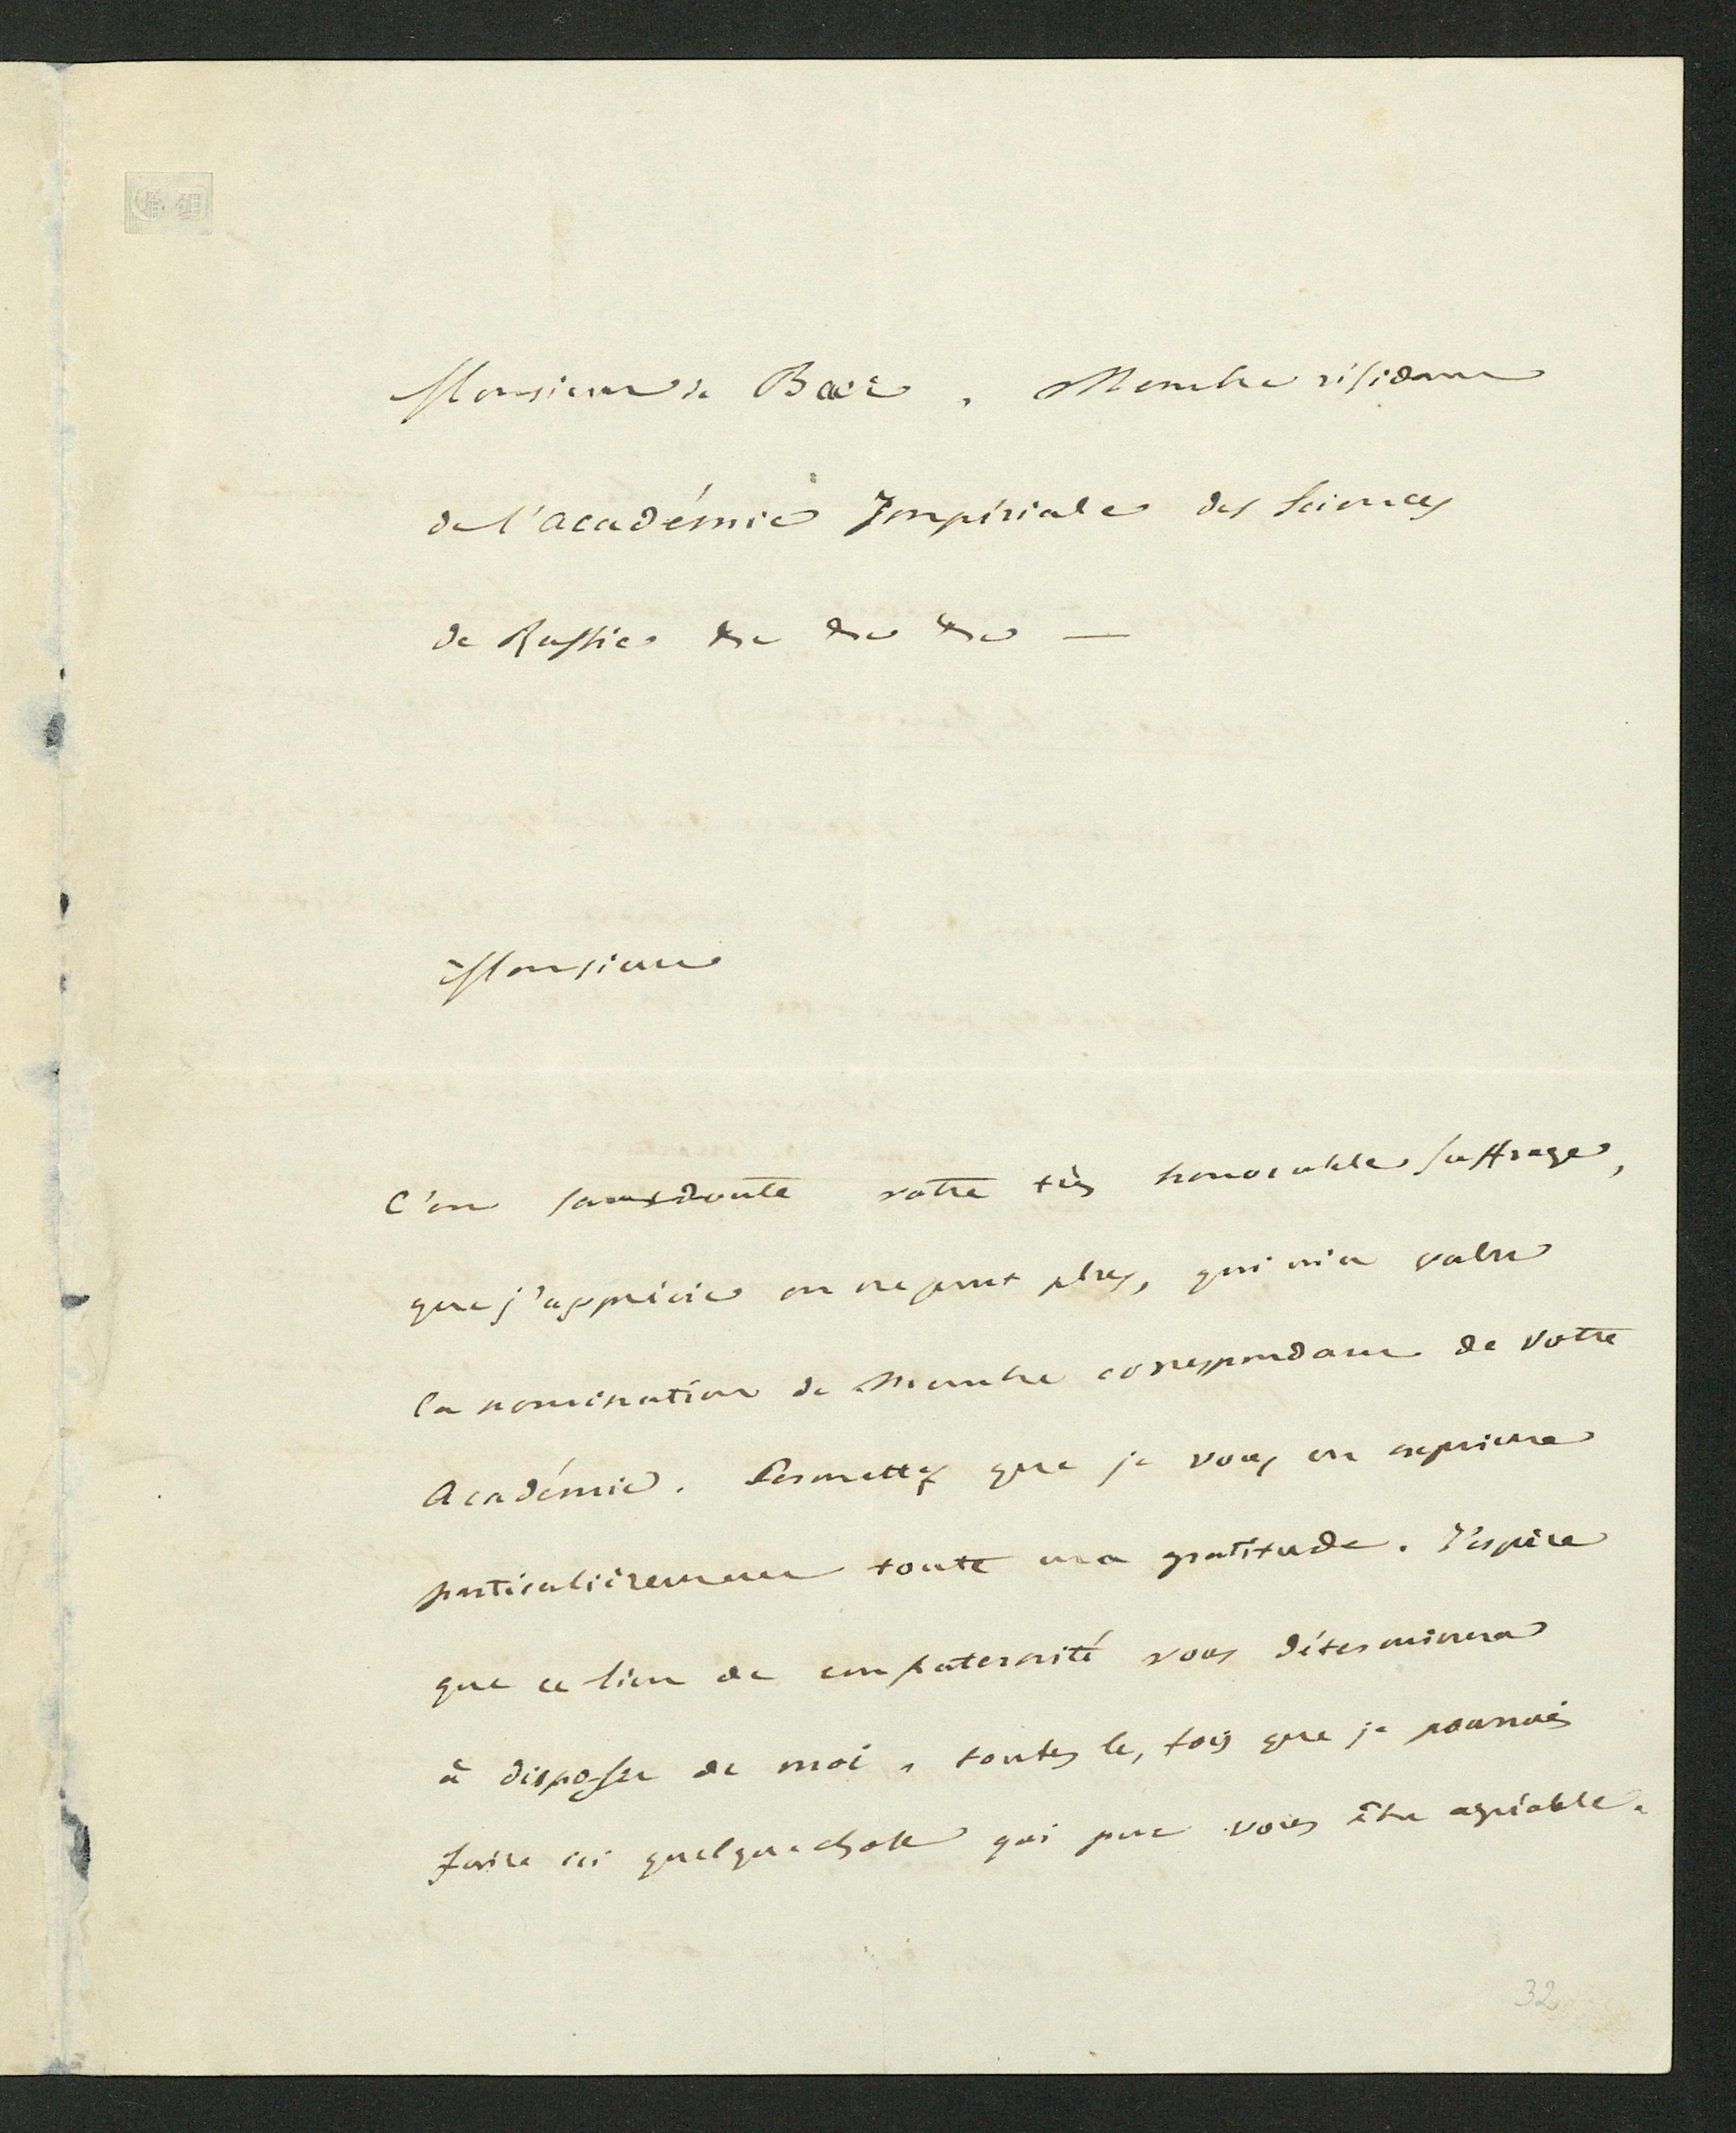 Monsieur de Baer, Membre résidant
de l'académie Impériale des Sciences
de Russie &c &c &c —
Monsieur
C'est sans doute votre très honorable suffrage,
que j'apprécie on ne peut plus, qui m'a valu
la nomination de Membre correspondant de votre
Académie. Permettez que je vous en exprime
particulièrement toute ma gratitude. J'espère
que ce lien de confraternité vous déterminera
à disposer de moi, toutes les fois que je pourrais
faire ici quelque chose qui peut vous être agréable.
32